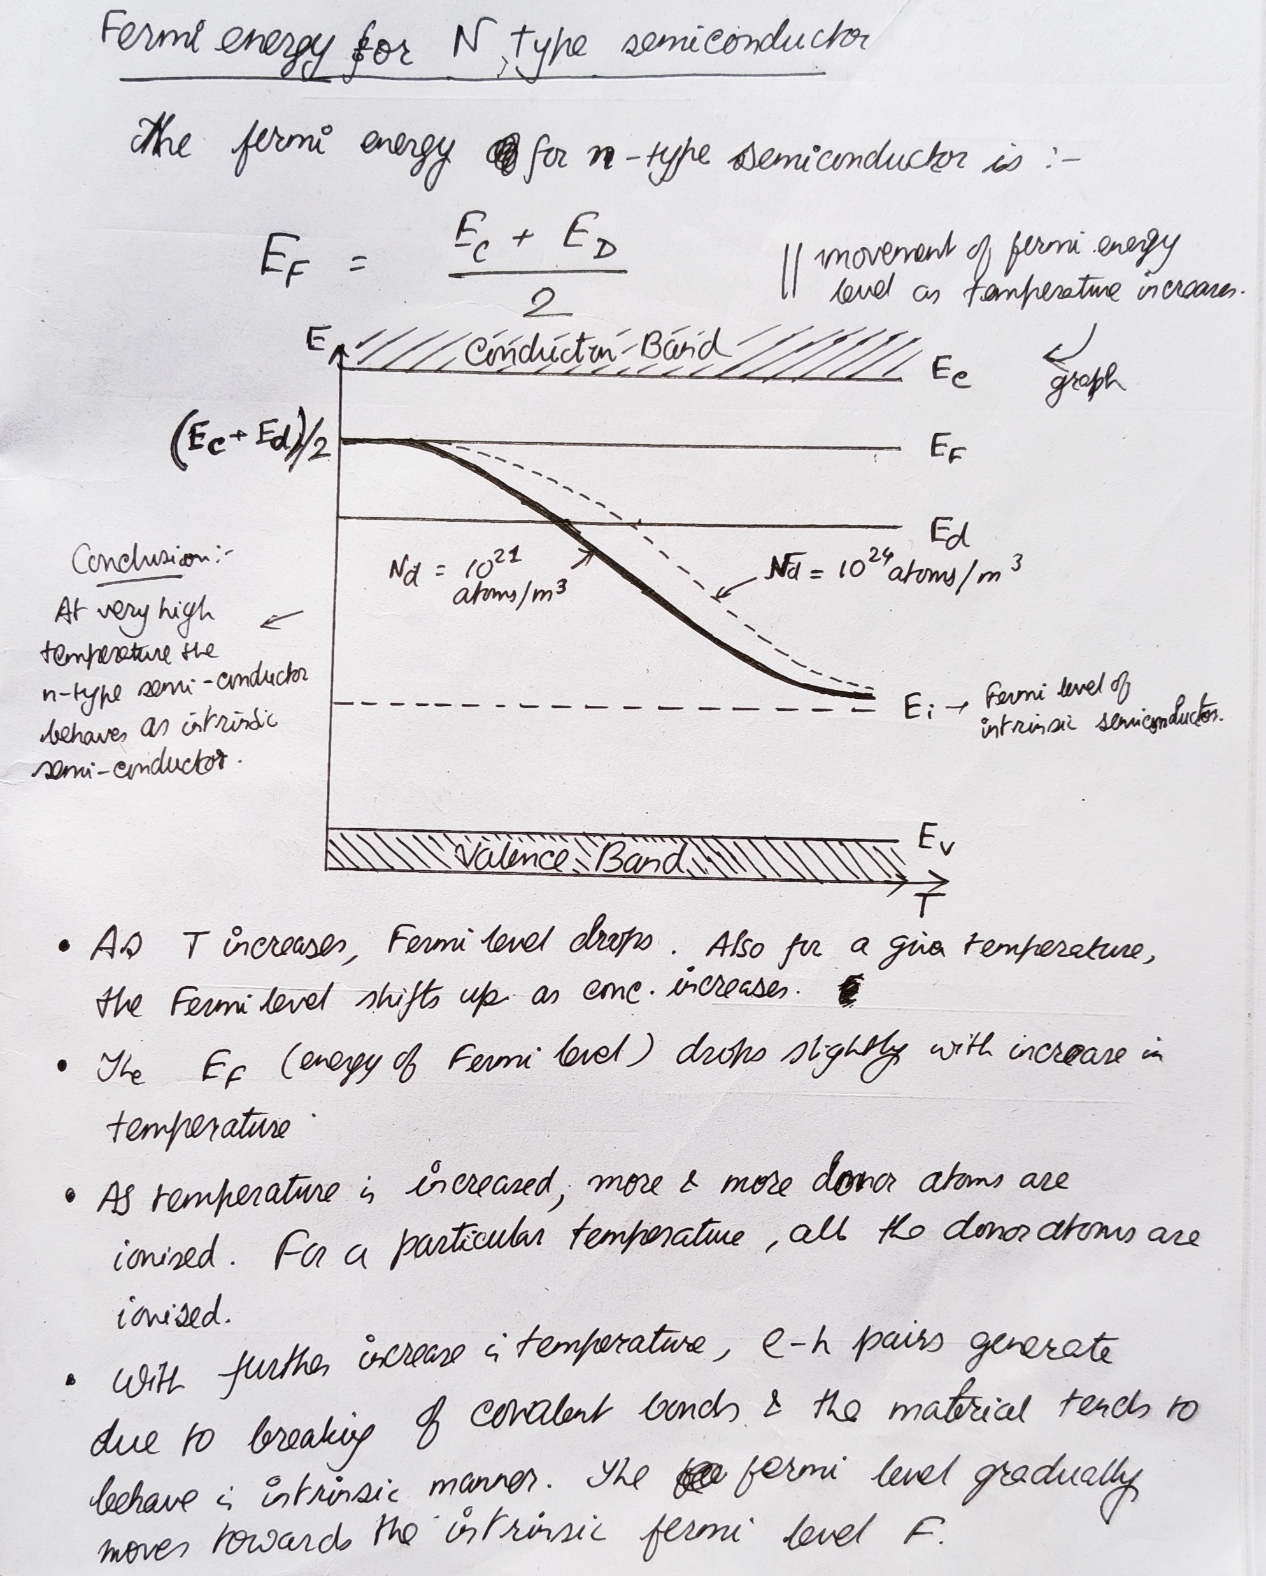 Fermi energy for N, type semiconductor
The fermi energy for n-type semiconductor is :-
E_F = (E_C + E_D) / 2
|| movement of fermi energy
level as temperature increases.
graph
E
Conduction Band
E_c
(E_c + E_d)/2
E_F
E_d
N_d = 10^21
atoms/m^3
N_d = 10^24 atoms/m^3
Conclusion:-
At very high
temperature the
n-type semi-conductor
behaves as intrinsic
semi-conductor.
E_i → Fermi level of
intrinsic semiconductor.
E_v
Valence Band
T
• As T increases, Fermi level drops. Also for a given temperature,
the Fermi level shifts up as conc. increases.
• The E_F (energy of Fermi level) drops slightly with increase in
temperature
• As temperature is increased, more & more donor atoms are
ionised. For a particular temperature, all the donor atoms are
ionised.
• With further increase in temperature, e-h pairs generate
due to breaking of covalent bonds & the material tends to
behave in intrinsic manner. The fermi level gradually
moves towards the intrinsic fermi level F.